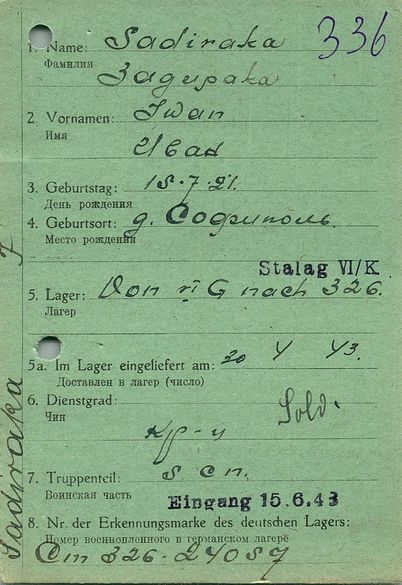 336
1. Name: Sadiraka
Фамилия Задирака
2. Vornamen: Iwan
Имя Иван
3. Geburtstag: 15.7.21.
День рождения
4. Geburtsort: д. Софиполь.
Место рождения
Stalag VI/K
5. Lager: Von VI G nach 326.
Лагер
5a. Im Lager eingeliefert am: 20 43.
Доставлен в лагер (число)
6. Dienstgrad: Sold.
Чин
кр-ц
7. Truppenteil: сп.
Воинская часть
Eingang 15.6.43
8. Nr. der Erkennungsmarke des deutschen Lagers:
Номер военнопленного в германском лагере
326-24087
Sadiraka J